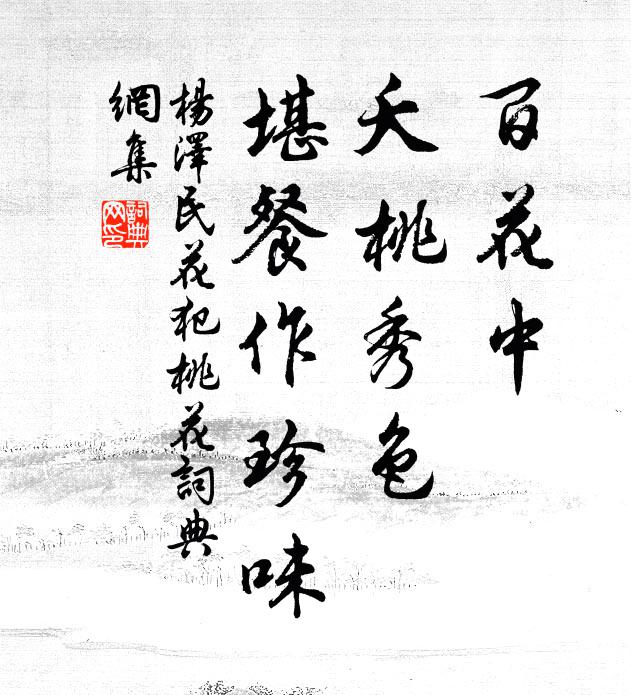 百花中
夭桃秀色
堪餐作珍味
楊澤民花犯桃花詞典
網集
詞典
网印